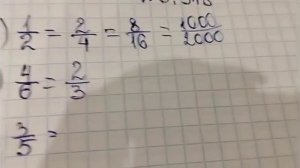 ) 1/2 = 2/4 = 8/16 = 1000/2000
4/6 = 2/3
3/5 =